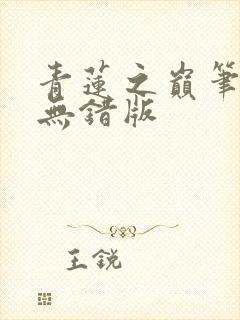 青蓮之巔筆
無錯版
王銳